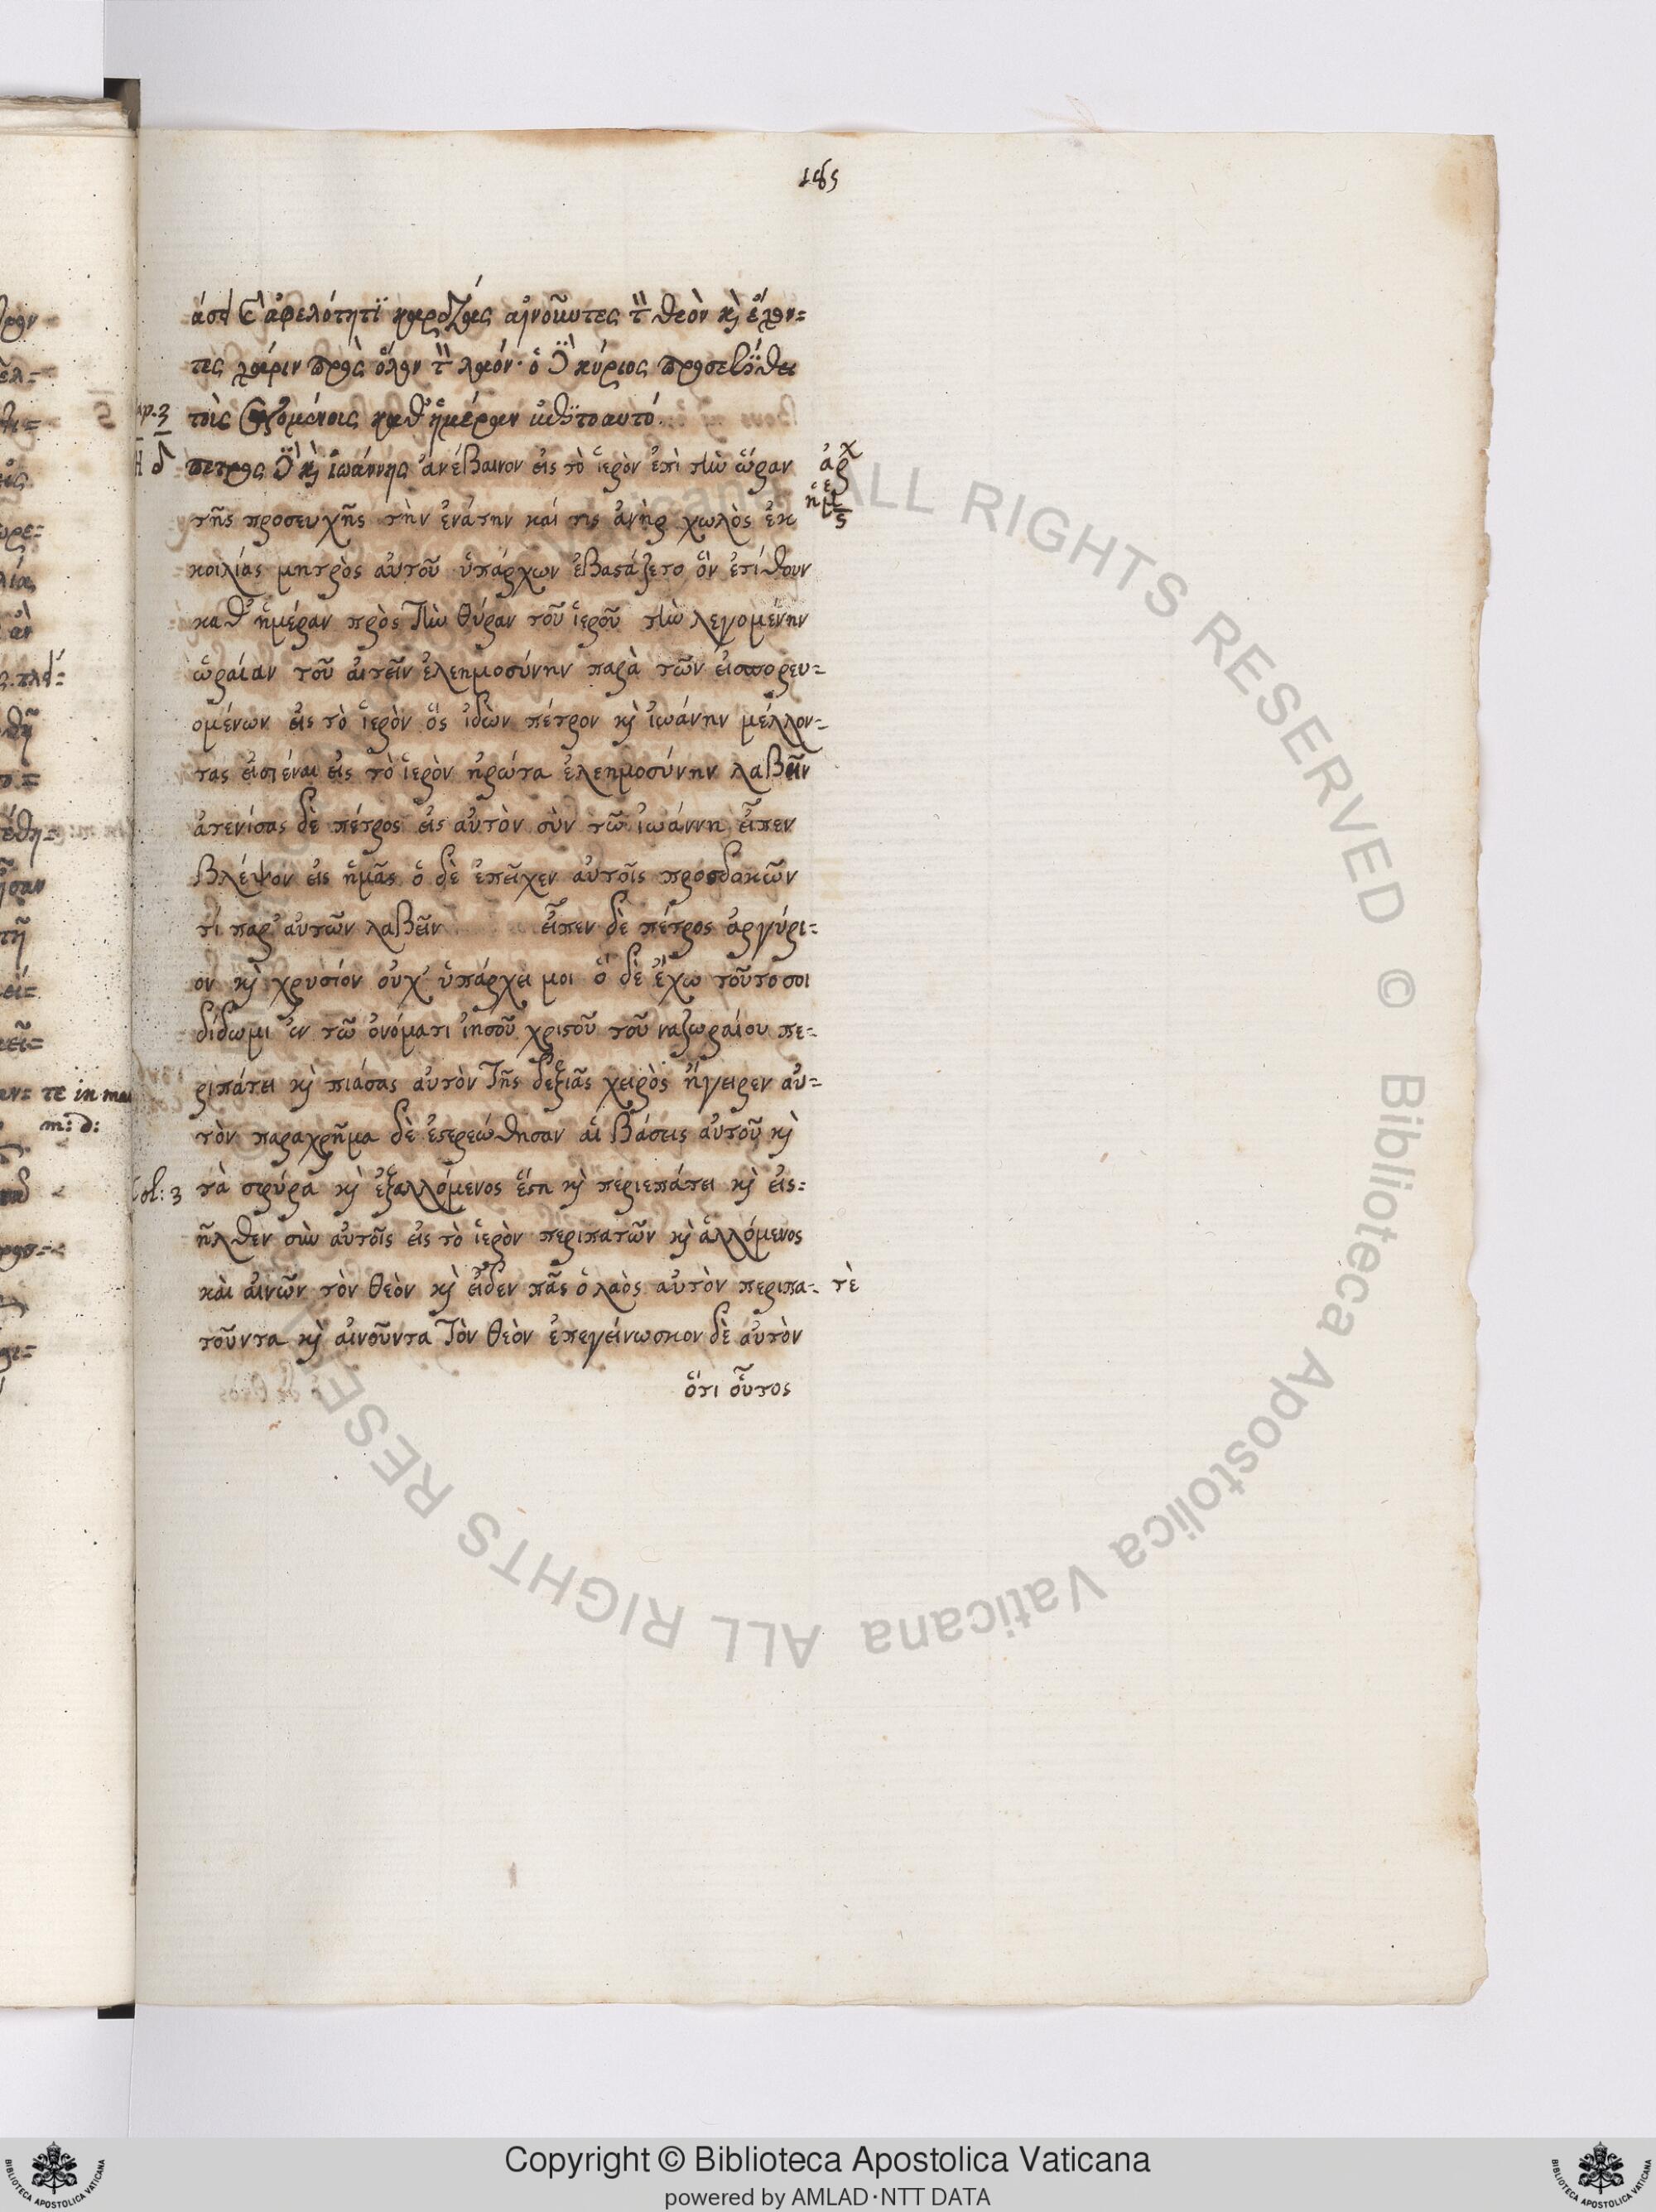 185
άσει κ̀ ἀφελότητϊ καρδίας αἰνοῦντες τ̀ θεὸν κ̀ ἔχον=
τες χάριν πρὸς ὅλον τ̀ λαόν· ὁ δὲ κύριος προσετίθει
τοῖς σωζομένοις καθ' ἡμέραν ἐπὶτοαυτό.
πετρος δὲ κ̀ ἰωάννης ἀνέβαινον εἰς τὸ ἱερὸν ἐπὶ τὴν ὥραν
τῆς προσευχῆς τὴν ἐνάτην καί τις ἀνὴρ χωλὸς ἐκ
κοιλίας μητρὸς αὐτοῦ ὑπάρχων ἐβαϛάζετο ὃν ἐτίθουν
καθ' ἡμέραν πρὸς τὴν θύραν τοῦ ἱεροῦ τὴν λεγομένην
ὡραίαν τοῦ αἰτεῖν ἐλεημοσύνην παρὰ τῶν εἰσπορευ=
ομένων εἰς τὸ ἱερὸν ὃς ἰδὼν πέτρον κ̀ ἰωάνην μέλλον=
τας εἰσιέναι εἰς τὸ ἱερὸν ἠρώτα ἐλεημοσύνην λαβεῖν
ἀτενίσας δὲ πέτρος εἰς αὐτὸν σὺν τῶ ἰωάννη εἶπεν
βλέψον εἰς ἡμᾶς ὁ δὲ ἐπεῖχεν αὐτοῖς προσδοκῶν
τί παρ' αὐτῶν λαβεῖν εἶπεν δὲ πέτρος ἀργύρι=
ον κ̀ χρυσίον οὐχ' ὑπάρχει μοι ὃ δὲ ἔχω τοῦτο σοι
δίδωμι ἐν τῶ ὀνόματι ἰησοῦ χριϛοῦ τοῦ ναζωραίου πε=
ριπάτει κ̀ πιάσας αὐτὸν τῆς δεξιᾶς χειρὸς ἤγειρεν αὐ=
τὸν παραχρῆμα δὲ ἐϛερεώθησαν αἱ βάσεις αὐτοῦ κ̀
τὰ σφύρα κ̀ ἐξαλλόμενος ἔϛη κ̀ περιεπάτει κ̀ εἰς=
ῆλθεν σὺν αὐτοῖς εἰς τὸ ἱερὸν περιπατῶν κ̀ ἁλλόμενος
καὶ αἰνῶν τὸν θεὸν κ̀ εἶδεν πᾶς ὁ λαὸς αὐτὸν περιπα=
τοῦντα κ̀ αἰνοῦντα τὸν θεὸν ἐπεγείνωσκον δὲ αὐτὸν
ὅτι οὗτος
τὲ
te in mar
m: d:
Col: 3
© Biblioteca Apostolica Vaticana ALL RIGHTS RESERVED
Copyright © Biblioteca Apostolica Vaticana
powered by AMLAD·NTT DATA
BIBLIOTECA APOSTOLICA VATICANA
BIBLIOTECA APOSTOLICA VATICANA